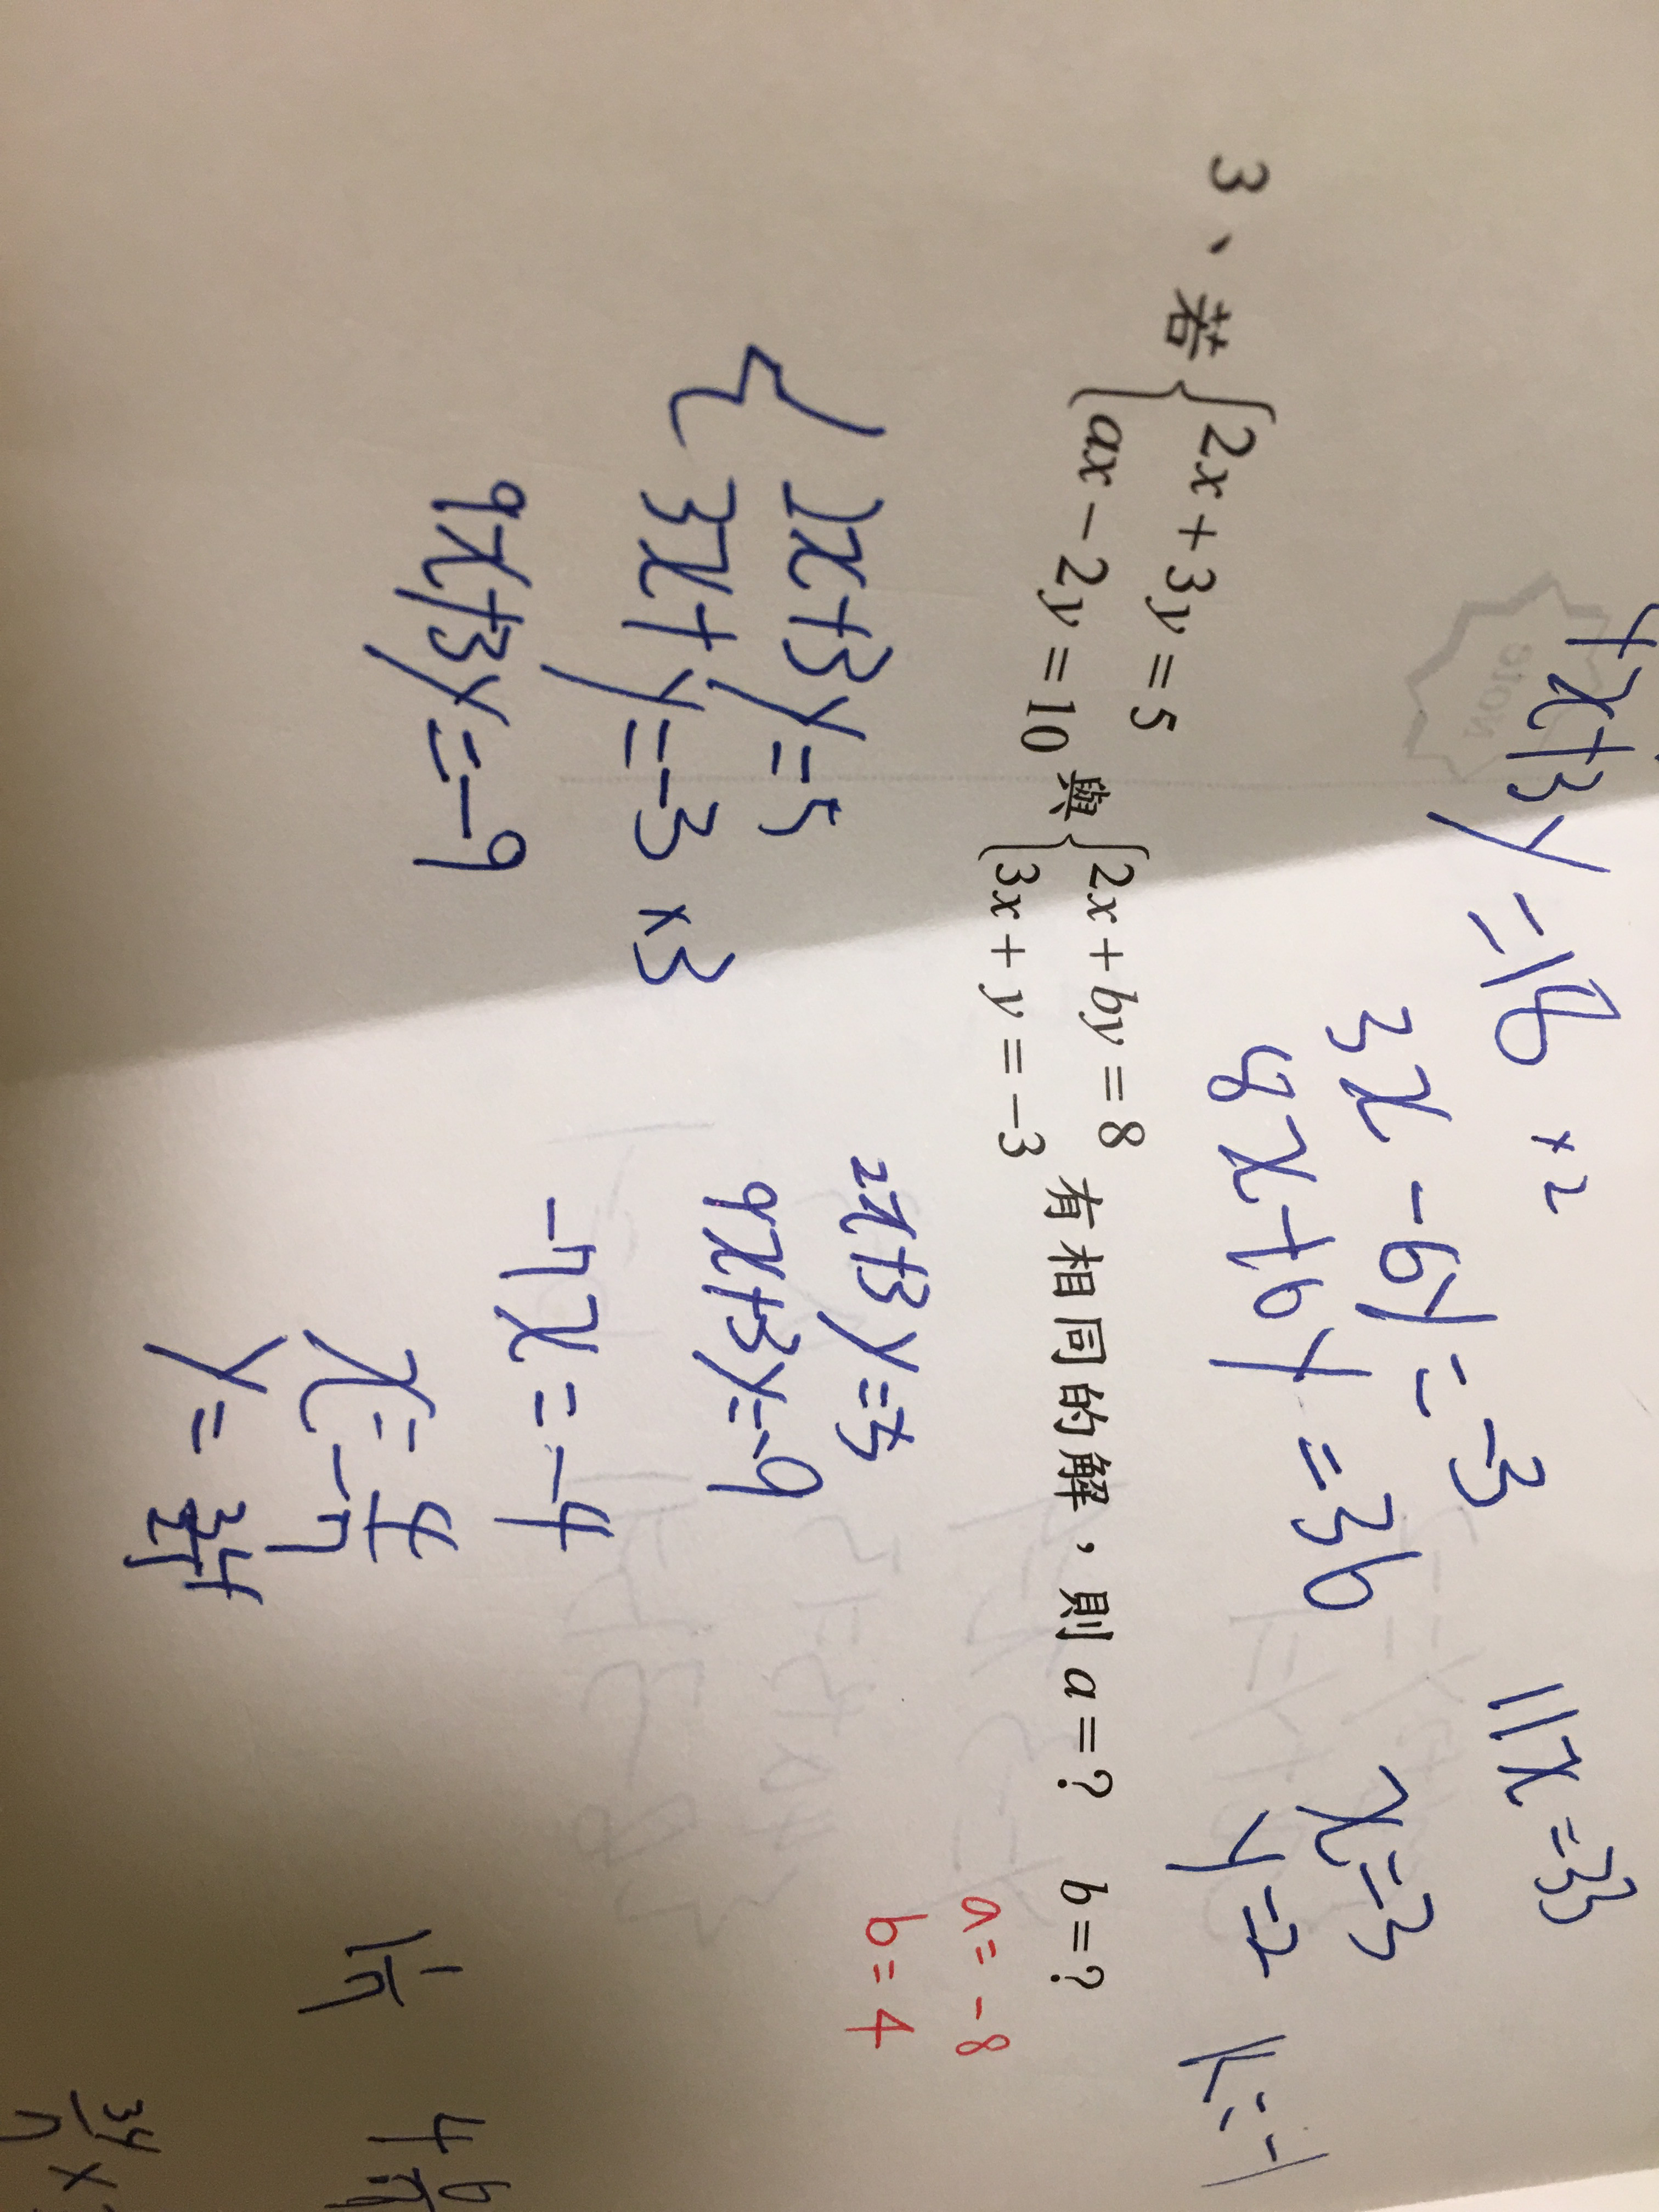 4x+3y=18 ×2
3x-6y=-3
8x+6y=36
11x=33
x=3
y=2
k=-1
3、若{2x+3y=5 ax-2y=10 與{2x+by=8 3x+y=-3 有相同的解，則a=? b=?
a=-8
b=4
{2x+3y=5
3x+y=-3 ×3
9x+3y=-9
2x+3y=5
9x+3y=-9
-7x=-4
x=-4/7
y=